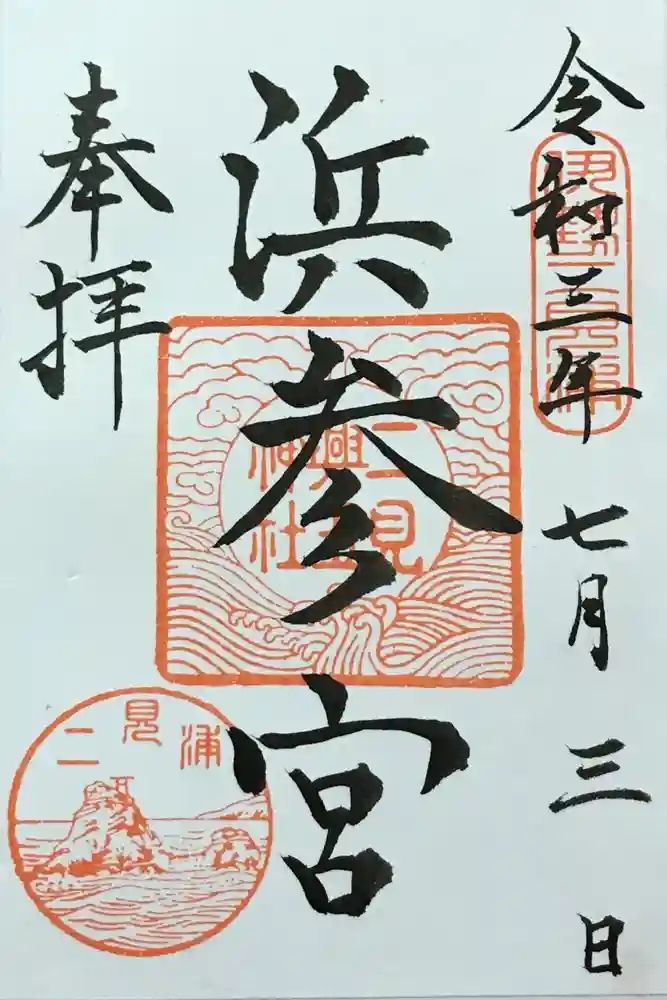 令和三年七月三日
伊勢二見浦
浜参宮
二見興玉神社
奉拝
二見浦